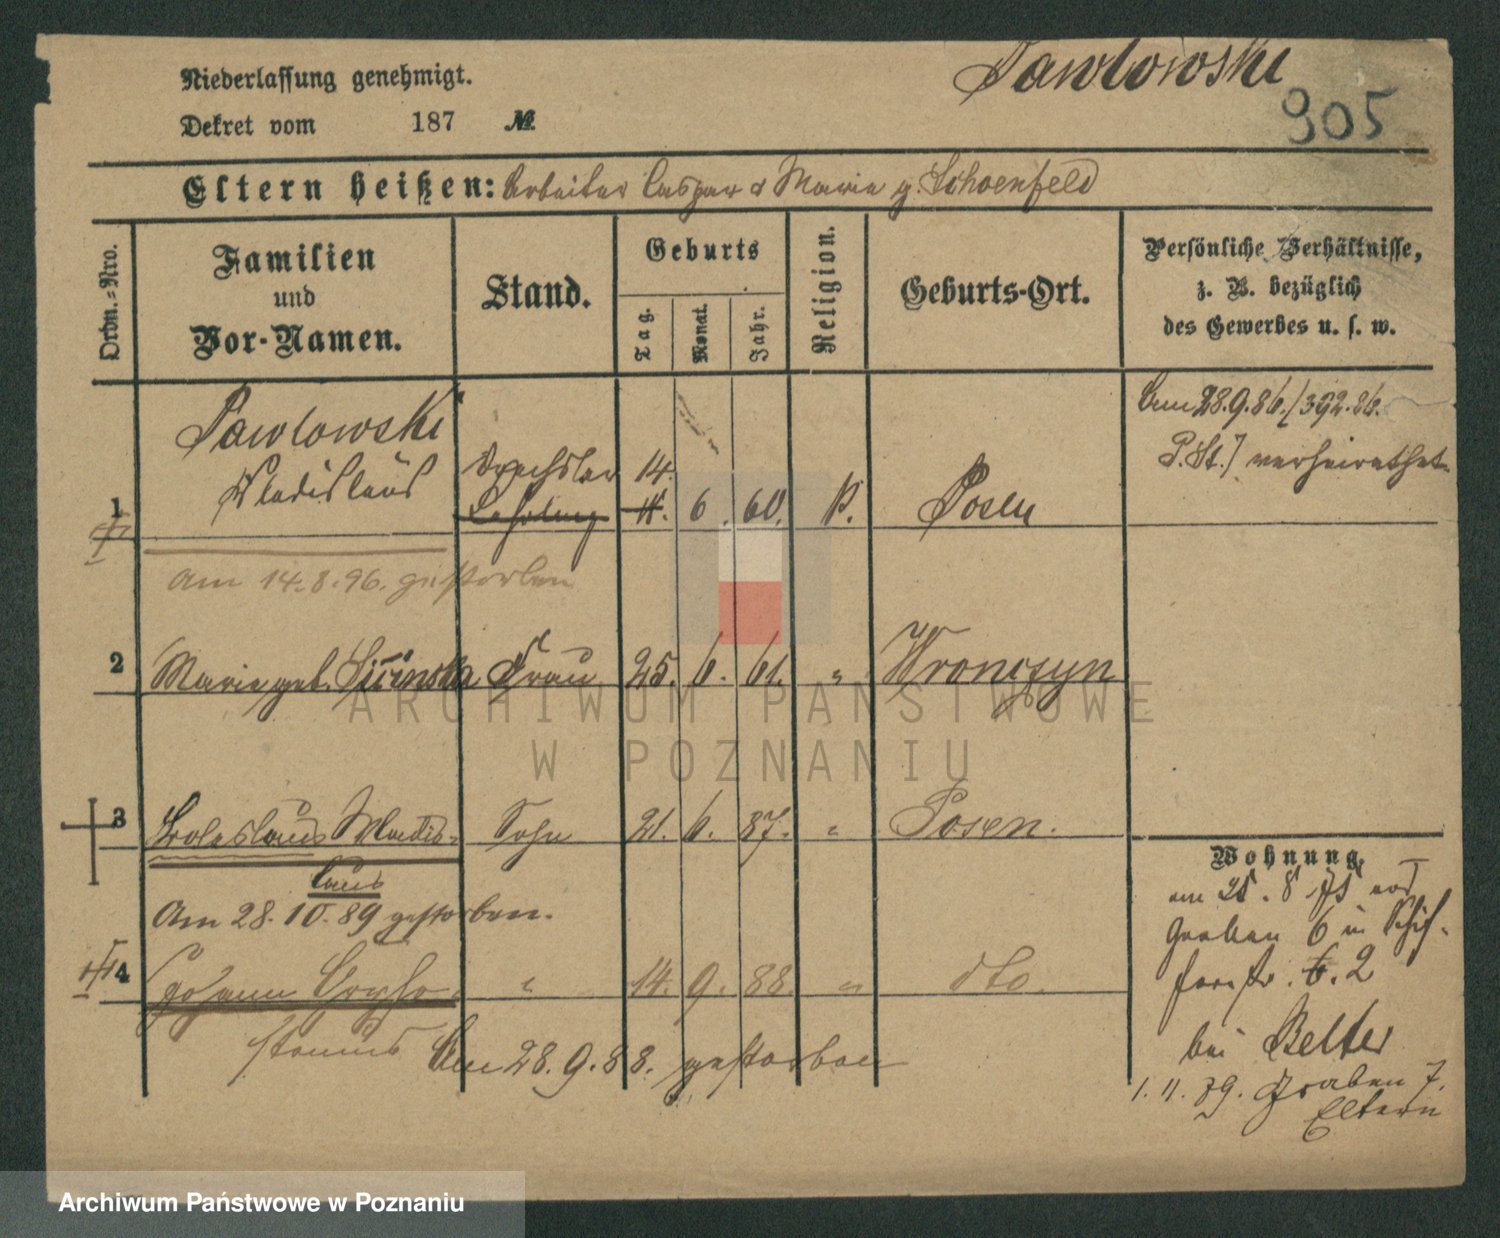 Pawlowski
905
Niederlassung genehmigt.
Dekret vom 187 №
Eltern heißen: Arbeiter Caspar & Marie g. Schoenfeld
Ordn.-Nro.
Familien und Vor-Namen.
Stand.
Geburts
Tag. Monat. Jahr.
Religion.
Geburts-Ort.
Persönliche Verhältnisse,
z. B. bezüglich
des Gewerbes u. s. w.
Am 28.9.86./392.86.
P.St.] verheirathet
Pawlowski
1 Wladislaus Drechsler Lehrling 14. 6. 60. k. Posen
Am 14.8.96. gestorben
2 Marie geb. Frau 25. 6. 61. " Wronczyn
3 Boleslaus Wladis- Sohn 21. 6. 87. " Posen.
laus
Am 28.10.89 gestorben.
4 Johann " 14. 9. 88. " dto.
Am 28.9.88. gestorben
Wohnung.
am 25. 8 75 von
Graben 6 in Schif-
ferstr. 6. 2
bei Belter
1.11.79. Graben 7.
Eltern
ARCHIWUM PAŃSTWOWE
W POZNANIU
Archiwum Państwowe w Poznaniu